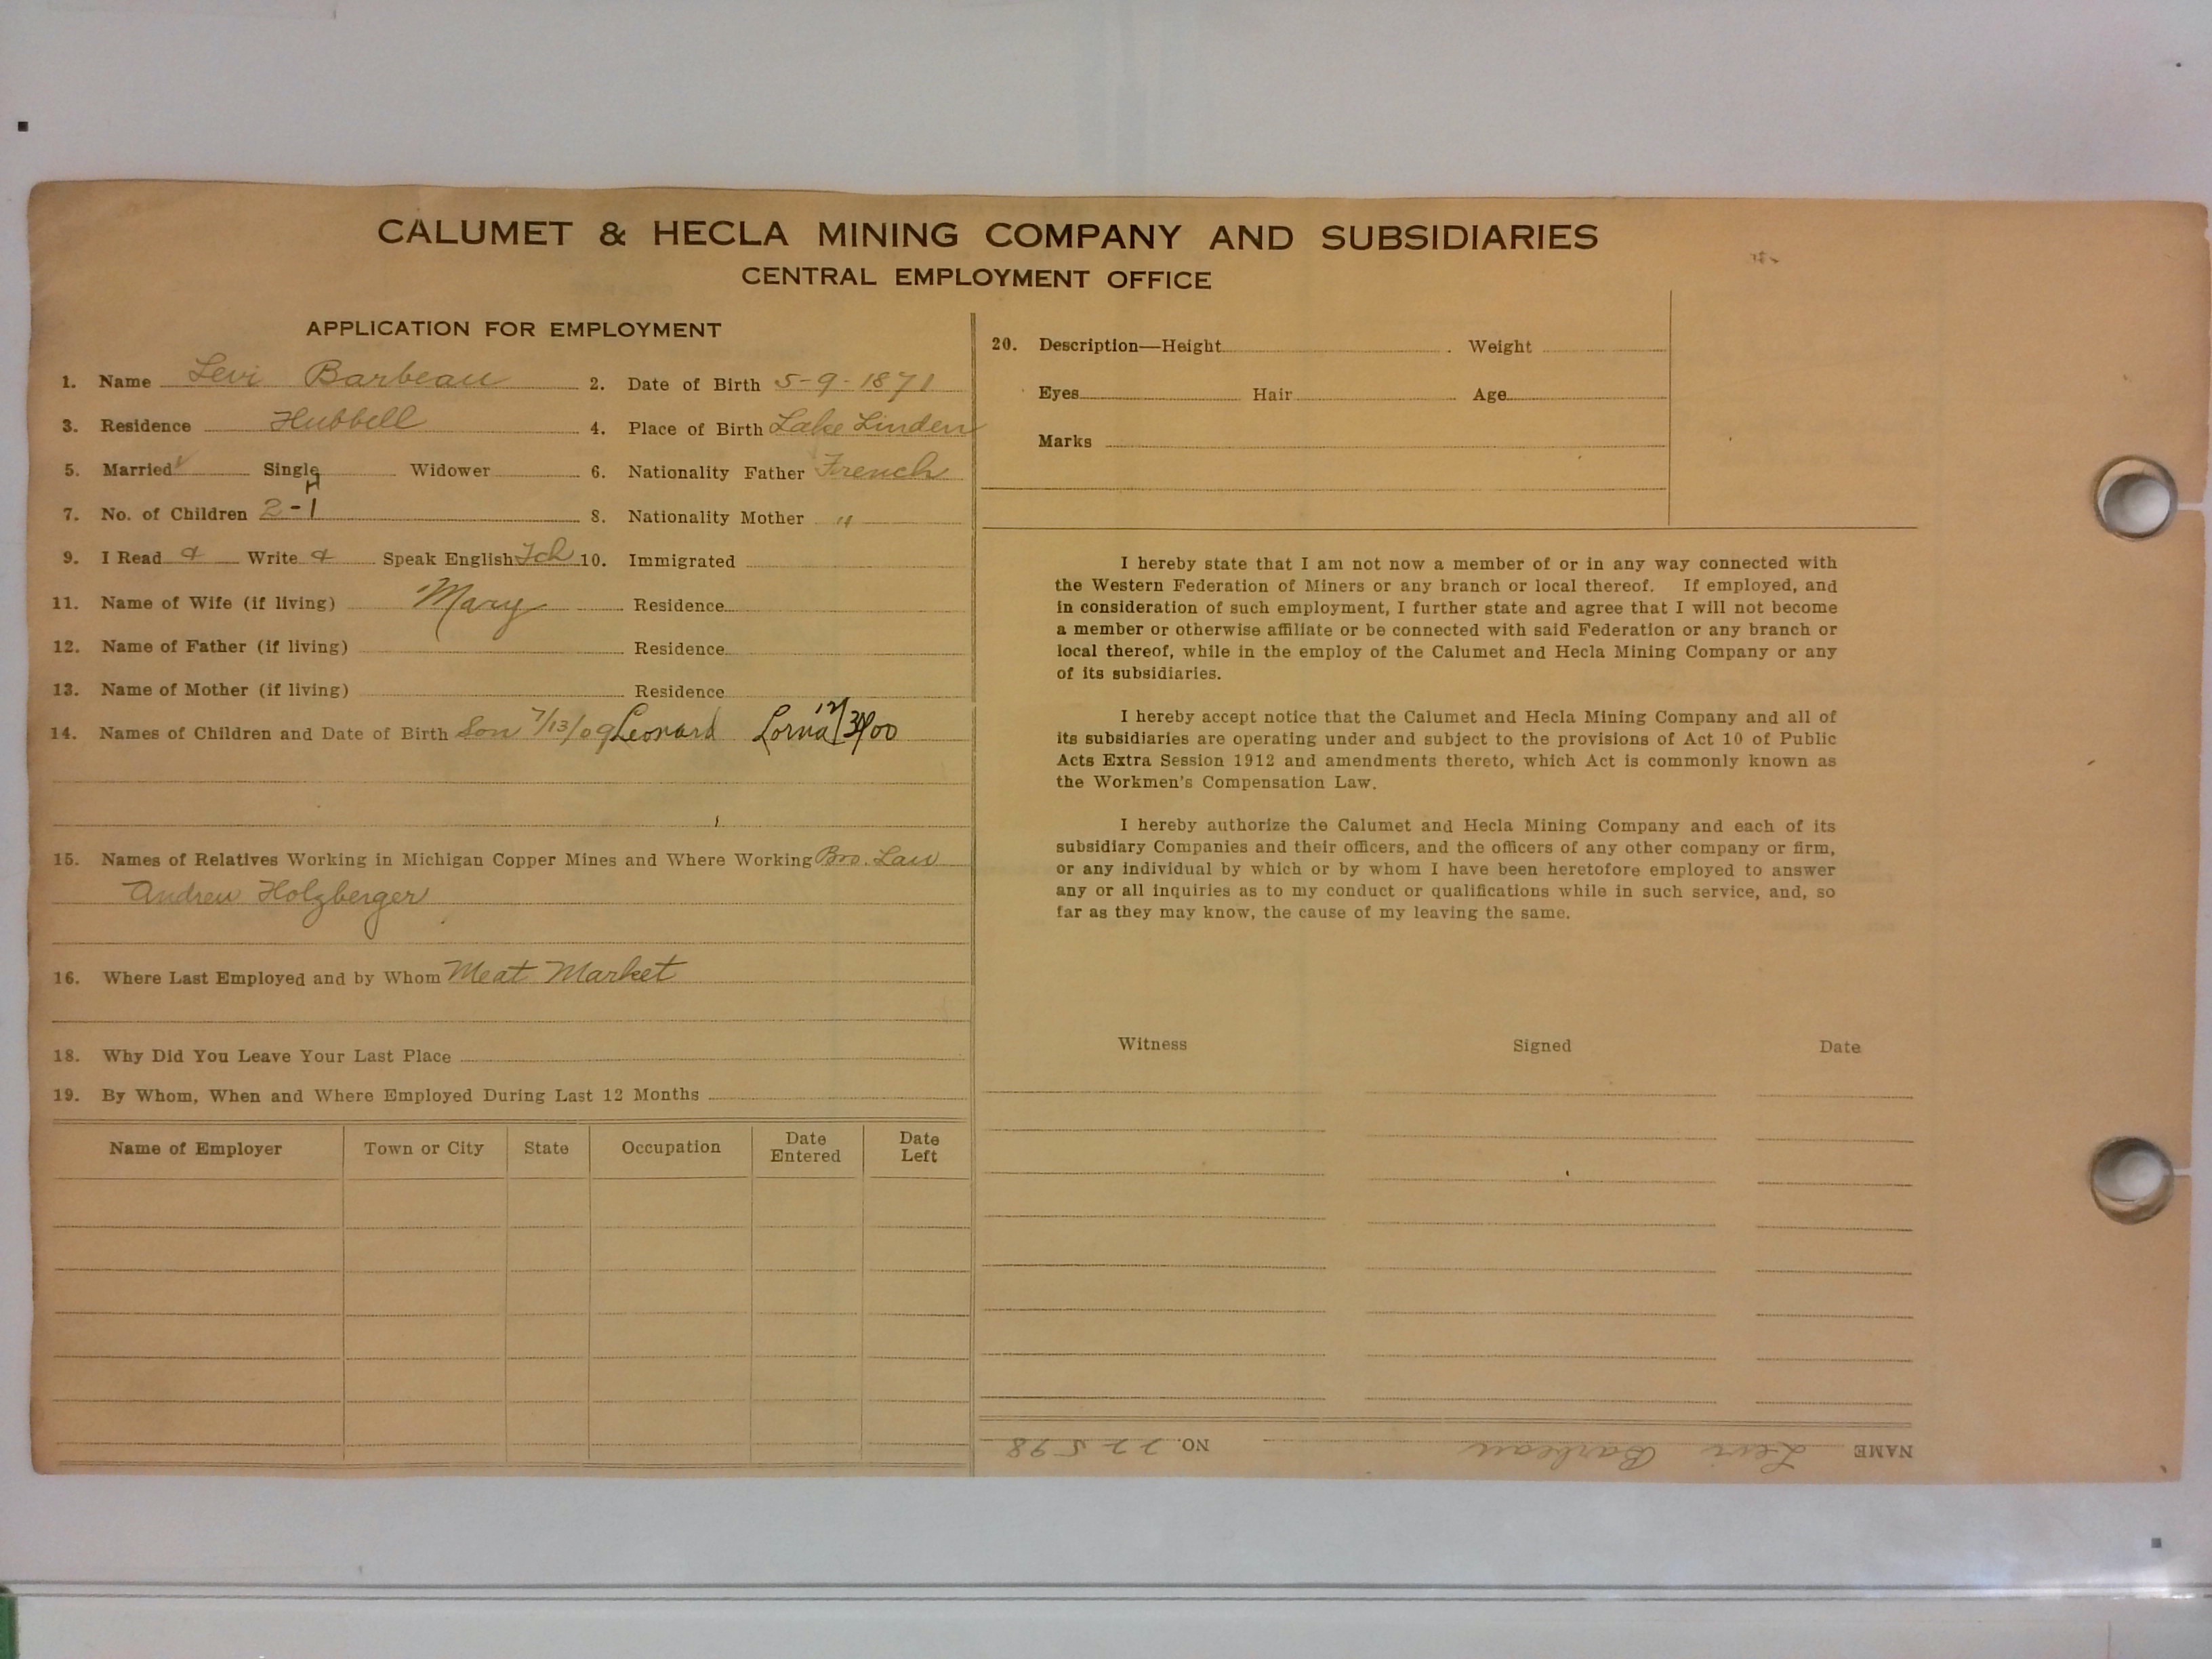 CALUMET & HECLA MINING COMPANY AND SUBSIDIARIES
CENTRAL EMPLOYMENT OFFICE
APPLICATION FOR EMPLOYMENT
1. Name Levi Barbeau 2. Date of Birth 5-9-1871
3. Residence Hubbell 4. Place of Birth Lake Linden
5. Married ✓ Single Widower 6. Nationality Father French
7. No. of Children 2-1 8. Nationality Mother "
9. I Read & Write & Speak English 10. Immigrated
11. Name of Wife (if living) Mary Residence
12. Name of Father (if living) Residence
13. Name of Mother (if living) Residence
14. Names of Children and Date of Birth Son 7/13/09 Leonard Lorna
15. Names of Relatives Working in Michigan Copper Mines and Where Working Bro. Law
Andrew Holzberger
16. Where Last Employed and by Whom Meat Market
18. Why Did You Leave Your Last Place
19. By Whom, When and Where Employed During Last 12 Months
Name of Employer Town or City State Occupation Date Entered Date Left
20. Description—Height Weight
Eyes Hair Age
Marks
I hereby state that I am not now a member of or in any way connected with
the Western Federation of Miners or any branch or local thereof. If employed, and
in consideration of such employment, I further state and agree that I will not become
a member or otherwise affiliate or be connected with said Federation or any branch or
local thereof, while in the employ of the Calumet and Hecla Mining Company or any
of its subsidiaries.
I hereby accept notice that the Calumet and Hecla Mining Company and all of
its subsidiaries are operating under and subject to the provisions of Act 10 of Public
Acts Extra Session 1912 and amendments thereto, which Act is commonly known as
the Workmen's Compensation Law.
I hereby authorize the Calumet and Hecla Mining Company and each of its
subsidiary Companies and their officers, and the officers of any other company or firm,
or any individual by which or by whom I have been heretofore employed to answer
any or all inquiries as to my conduct or qualifications while in such service, and, so
far as they may know, the cause of my leaving the same.
Witness Signed Date
NAME Levi Barbeau NO. 22598